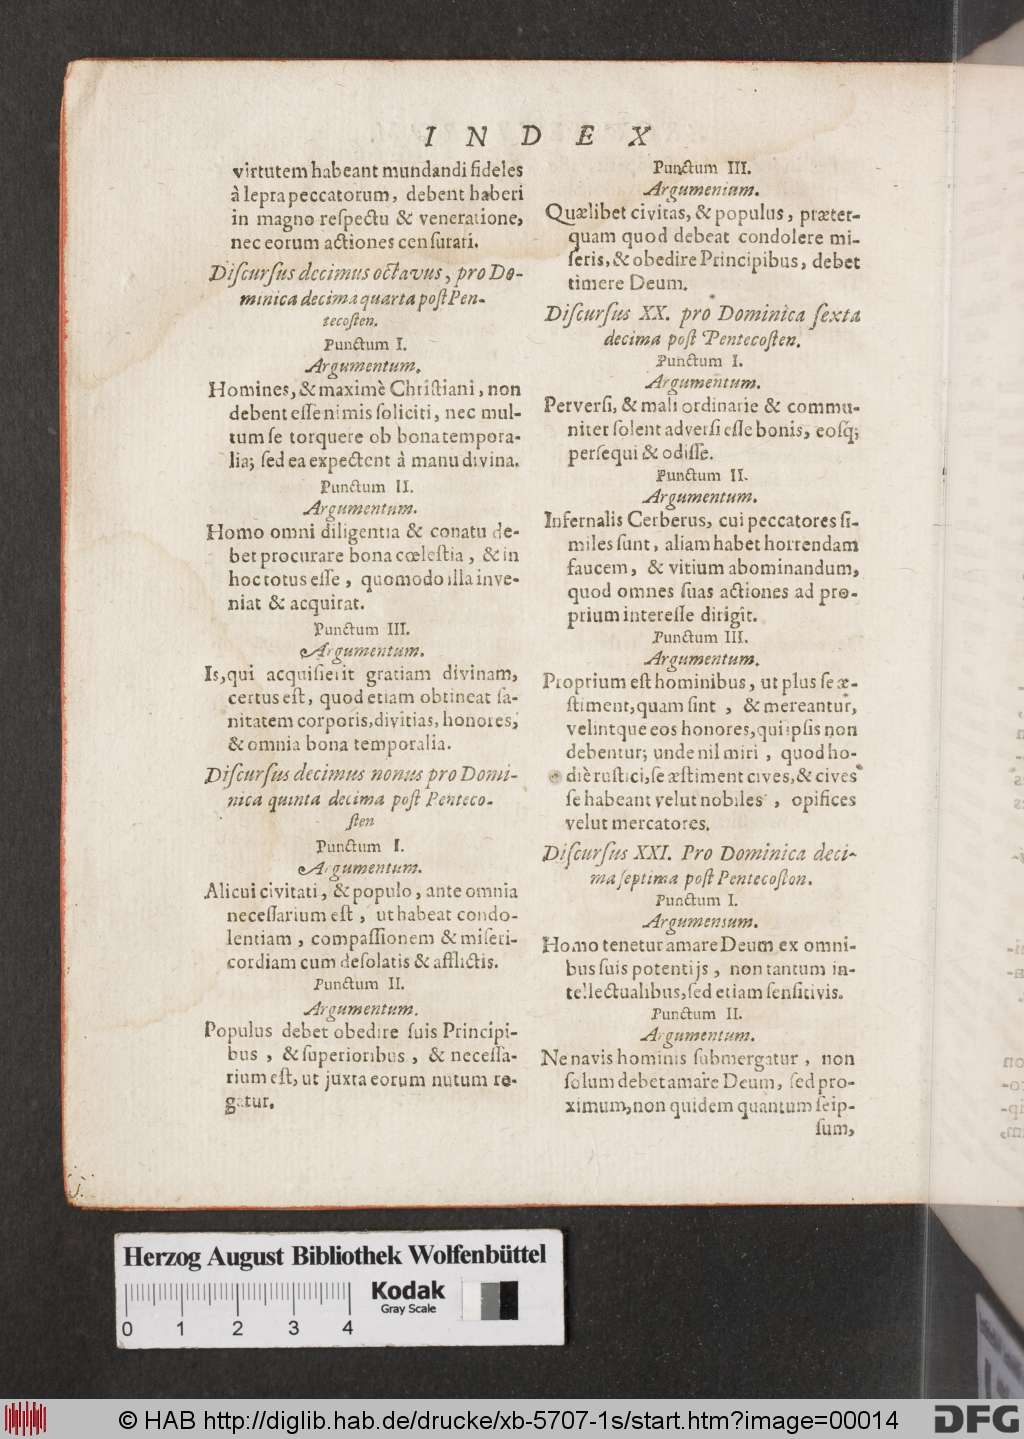 INDEX
virtutem habeant mundandi fideles
à lepra peccatorum, debent haberi
in magno reſpectu & veneratione,
nec eorum actiones cenſurari.
Diſcurſus decimus octavus, pro Do-
minica decima quarta poſt Pen-
tecoſten.
Punctum I.
Argumentum.
Homines, & maximè Chriſtiani, non
debent eſſe nimis ſoliciti, nec mul-
tum ſe torquere ob bona tempora-
lia; ſed ea expectent à manu divina.
Punctum II.
Argumentum.
Homo omni diligentia & conatu de-
bet procurare bona cœleſtia, & in
hoc totus eſſe, quomodo illa inve-
niat & acquirat.
Punctum III.
Argumentum.
Is, qui acquiſierit gratiam divinam,
certus eſt, quod etiam obtineat ſa-
nitatem corporis, divitias, honores,
& omnia bona temporalia.
Diſcurſus decimus nonus pro Domi-
nica quinta decima poſt Penteco-
ſten
Punctum I.
Argumentum.
Alicui civitati, & populo, ante omnia
neceſſarium eſt, ut habeat condo-
lentiam, compaſſionem & miſeri-
cordiam cum deſolatis & afflictis.
Punctum II.
Argumentum.
Populus debet obedire ſuis Principi-
bus, & ſuperioribus, & neceſſa-
rium eſt, ut juxta eorum nutum re-
gatur.
Punctum III.
Argumenium.
Quælibet civitas, & populus, præter-
quam quod debeat condolere mi-
ſeris, & obedire Principibus, debet
timere Deum.
Diſcurſus XX. pro Dominica ſexta
decima poſt Pentecoſten.
Punctum I.
Argumentum.
Perverſi, & mali ordinarie & commu-
niter ſolent adverſi eſſe bonis, eoſq;
perſequi & odiſſe.
Punctum II.
Argumentum.
Infernalis Cerberus, cui peccatores ſi-
miles ſunt, aliam habet horrendam
faucem, & vitium abominandum,
quod omnes ſuas actiones ad pro-
prium intereſſe dirigit.
Punctum III.
Argumentum.
Proprium eſt hominibus, ut plus ſe æ-
ſtiment, quam ſint, & mereantur,
velintque eos honores, qui ipſis non
debentur; unde nil miri, quod ho-
diè ruſtici, ſe æſtiment cives, & cives
ſe habeant velut nobiles, opifices
velut mercatores.
Diſcurſus XXI. Pro Dominica deci-
ma ſeptima poſt Pentecoſton.
Punctum I.
Argumensum.
Homo tenetur amare Deum ex omni-
bus ſuis potentijs, non tantum in-
tellectualibus, ſed etiam ſenſitivis.
Punctum II.
Argumentum.
Ne navis hominis ſubmergatur, non
ſolum debet amare Deum, ſed pro-
ximum, non quidem quantum ſeip-
ſum,
Herzog August Bibliothek Wolfenbüttel
Kodak
Gray Scale
0 1 2 3 4
© HAB http://diglib.hab.de/drucke/xb-5707-1s/start.htm?image=00014
DFG